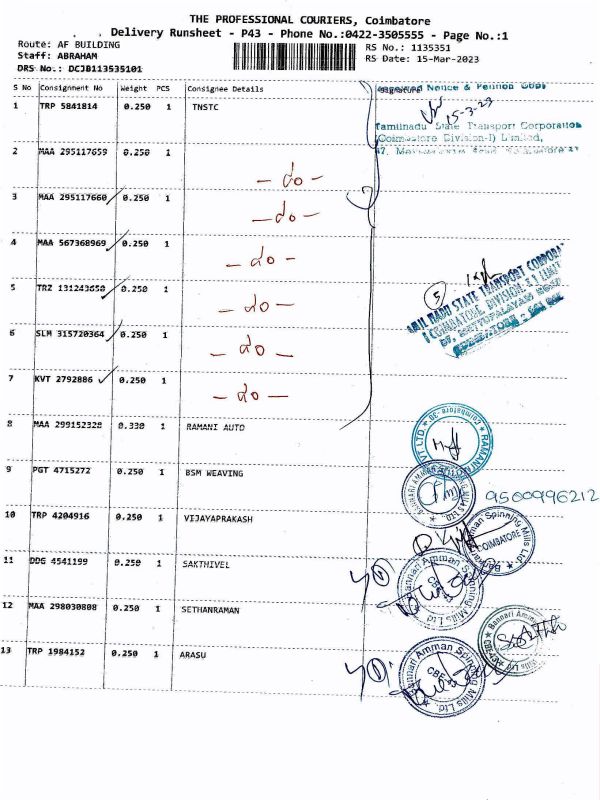 THE PROFESSIONAL COURIERS, Coimbatore
Delivery Runsheet - P43 - Phone No.:0422-3505555 - Page No.:1
Route: AF BUILDING
Staff: ABRAHAM
DRS No.: DCJB113535101
RS No.: 1135351
RS Date: 15-Mar-2023
S No Consignment No Weight PCS Consignee Details Signature
Received Notice & Petition Copy
15-3-23
1 TRP 5841814 0.250 1 TNSTC
Tamilnadu State Transport Corporation
(Coimbatore Division-I) Limited,
2 MAA 295117659 0.250 1
- do -
3 MAA 295117660 0.250 1
- do -
4 MAA 567368969 0.250 1
- do -
5 TRZ 131243650 0.250 1
- do -
5
TAMIL NADU STATE TRANSPORT CORPORATION
6 SLM 315720364 0.250 1
- do -
7 KVT 2792886 0.250 1
- do -
8 MAA 299152328 0.330 1 RAMANI AUTO
9 PGT 4715272 0.250 1 BSM WEAVING
9500996212
10 TRP 4204916 0.250 1 VIJAYAPRAKASH
Bannari Amman Spinning Mills Ltd.
COIMBATORE
11 DDG 4541199 0.250 1 SAKTHIVEL
Bannari Amman Spinning Mills Ltd
12 MAA 298030808 0.250 1 SETHANRAMAN
13 TRP 1984152 0.250 1 ARASU
Bannari Amman Spinning Mills Ltd.